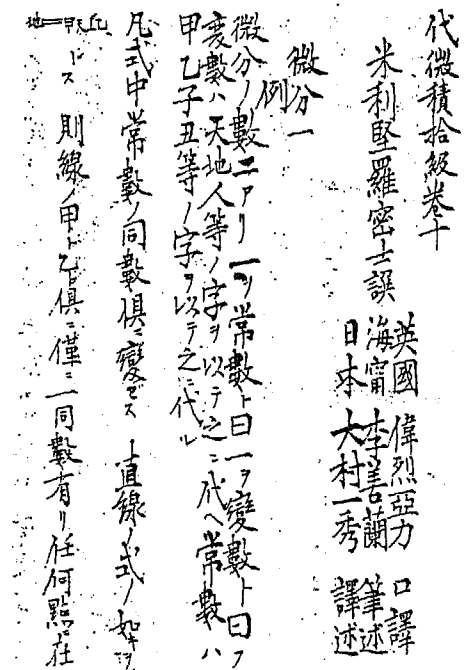 代微積拾級巻十
米利堅羅密士譔
英國 偉烈亞力 口譯
海甯 李善蘭 筆述
日本 大村一秀 譯述
微分一
例
微分ノ數二アリ一ヲ常數ト曰一ヲ變數ト曰フ
変數ハ天地人等ノ字ヲ以テ之ニ代ヘ常數ハ
甲乙子丑等ノ字ヲ以テ之ニ代ル
凡式中常數ノ同數俱ニ變セス 直線ノ式ノ如キヲ
地＝甲天
トス 則線ノ甲ト乙ト俱ニ僅ニ一同數有リ任何㸃ニ在